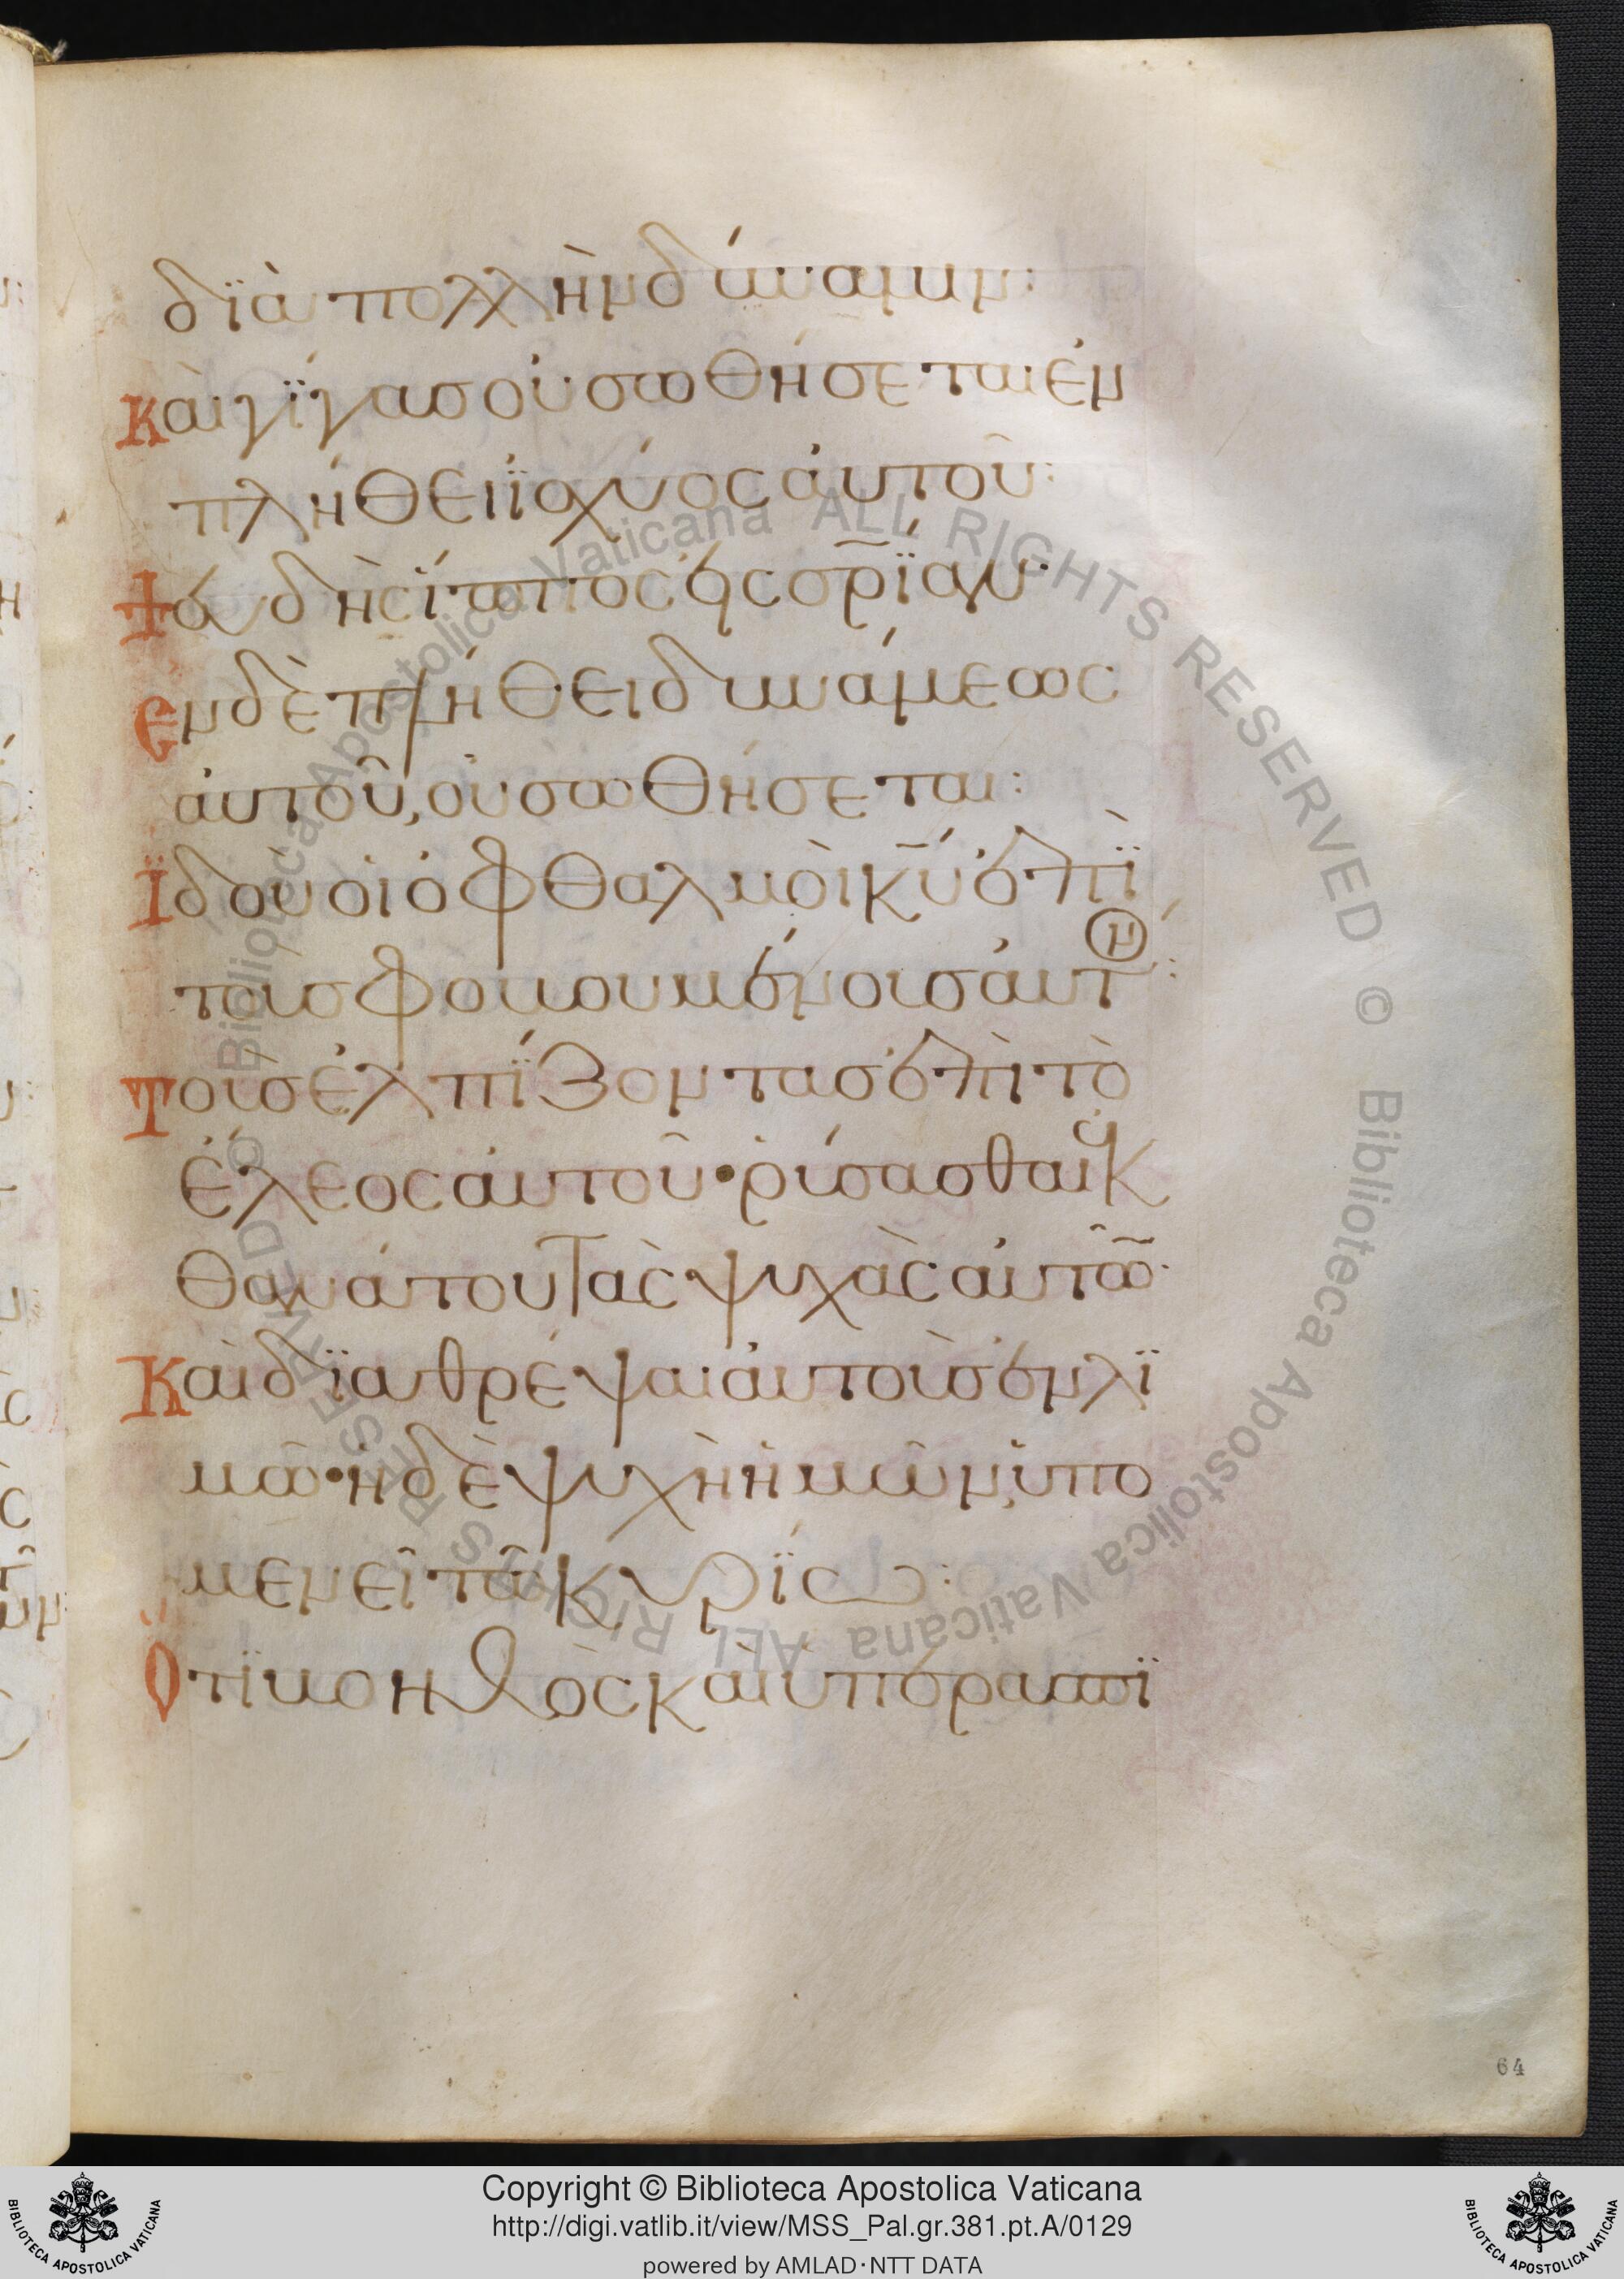 δϊὰ πολλὴν δύναμιν:
Καὶ γίγας οὐ σωθήσεται ἐν
πλήθει ἰσχύος ἀυτοῦ:
Ψευδὴς ἵππος εἰς σρ̅ίαν·
Εν δὲ πλήθει δυνάμεως
ἀυτοῦ, οὐ σωθήσεται:
Ϊδοὺ οἱ ὀφθαλμοὶ κ̅υ̅ ἐπὶ
τοὺς φοβουμένους ἀυτν:
Τοὺς ἐλπίζοντας ἐπὶ τὸ
ἔλεος ἀυτοῦ· ῥύσασθαι ἐκ
θανάτου τὰς ψυχὰς ἀυτῶ̅·
Καὶ διαθρέψαι ἀυτοὺς ἐν λι
μῶ· ἡ δὲ ψυχὴ ἡμῶν, ὑπο
μενεῖ τῶ κυρίω:
Ὅτι βοηθὸς καὶ ὑπερασπι
64
Copyright © Biblioteca Apostolica Vaticana
http://digi.vatlib.it/view/MSS_Pal.gr.381.pt.A/0129
powered by AMLAD·NTT DATA
BIBLIOTECA APOSTOLICA VATICANA
BIBLIOTECA APOSTOLICA VATICANA
© Biblioteca Apostolica Vaticana ALL RIGHTS RESERVED
© Biblioteca Apostolica Vaticana ALL RIGHTS RESERVED